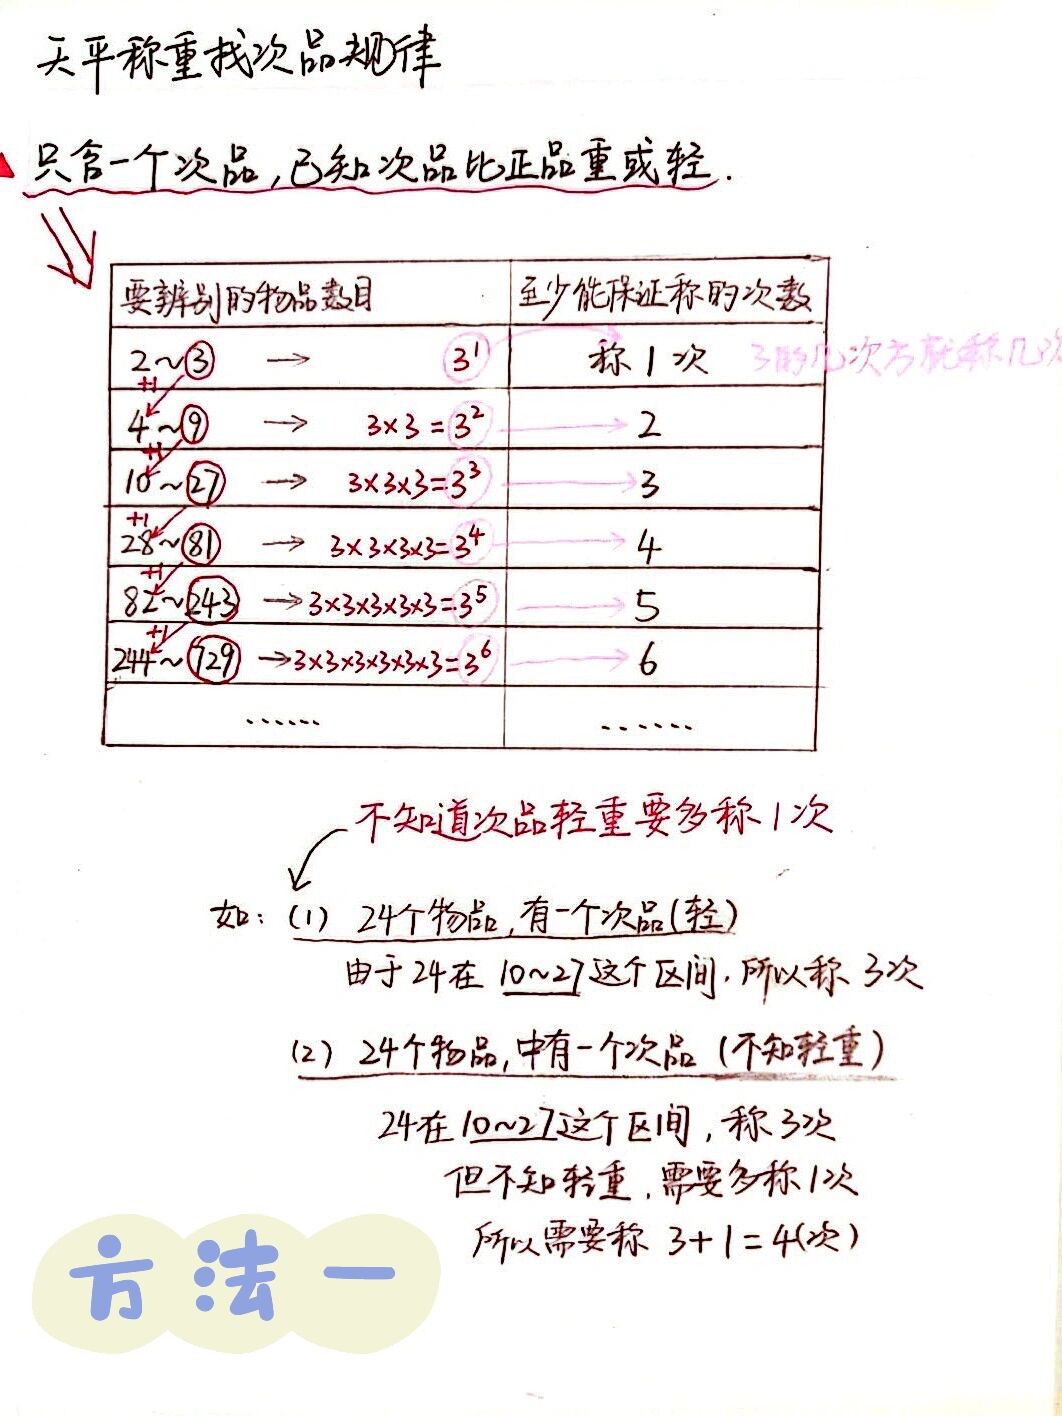 天平称重找次品规律
只含一个次品,已知次品比正品重或轻.
要辨别的物品数目 至少能保证称的次数
2~3 → 3¹ 称1次 3的几次方就称几次
+1
4~9 → 3×3=3² → 2
+1
10~27 → 3×3×3=3³ → 3
+1
28~81 → 3×3×3×3=3⁴ → 4
+1
82~243 → 3×3×3×3×3=3⁵ → 5
+1
244~729 → 3×3×3×3×3×3=3⁶ → 6
...... ......
不知道次品轻重要多称1次
如:(1) 24个物品,有一个次品(轻)
由于24在10~27这个区间.所以称3次
(2) 24个物品,中有一个次品(不知轻重)
24在10~27这个区间,称3次
但不知轻重,需要多称1次
所以需要称 3+1=4(次)
方法一